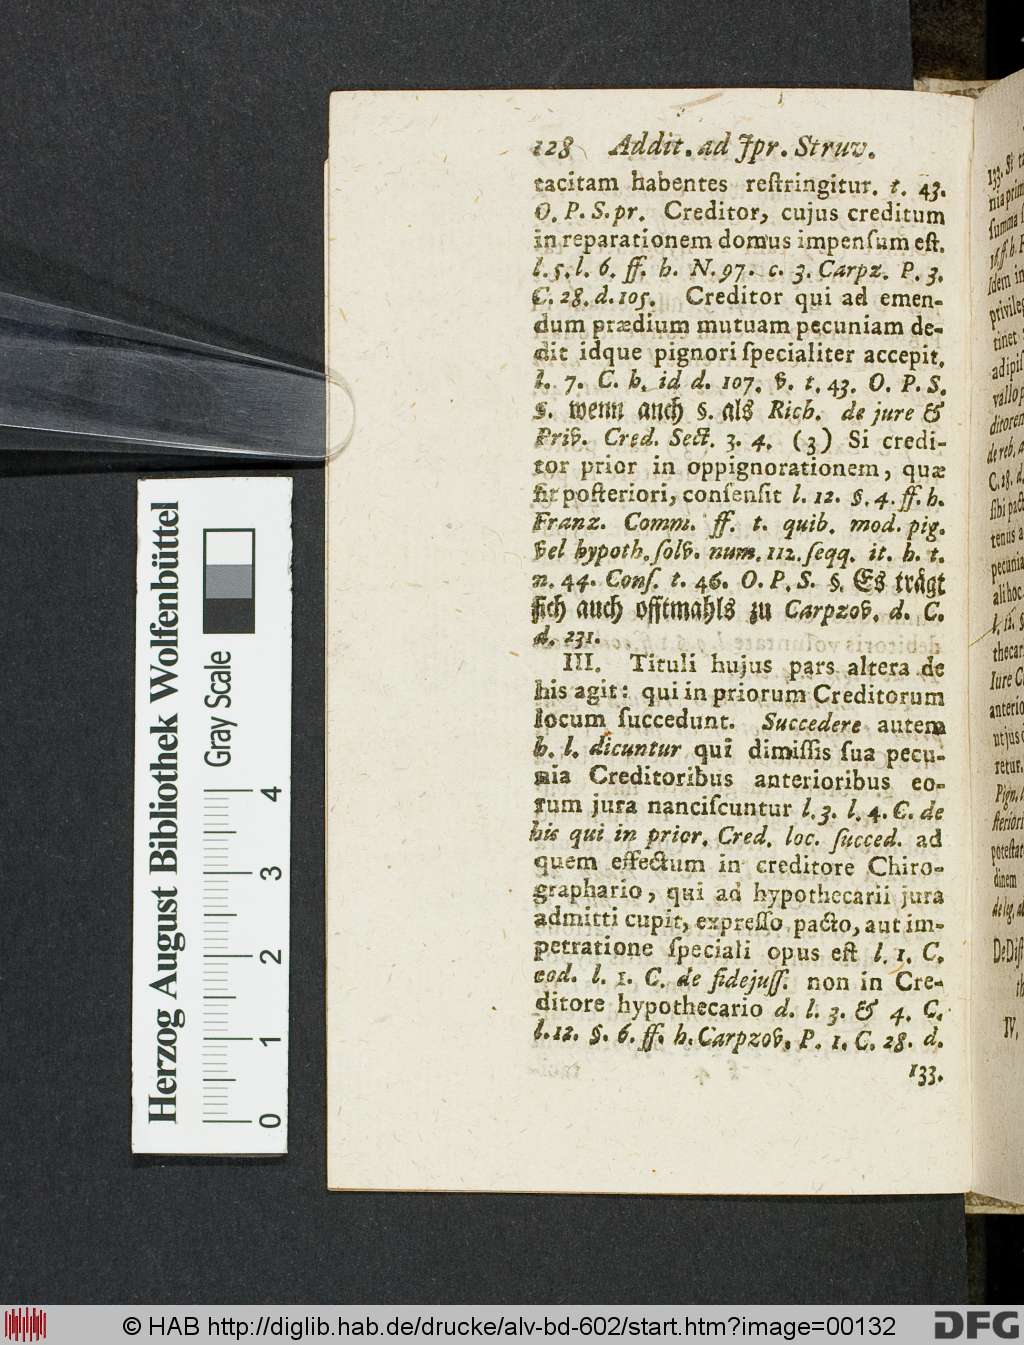 128 Addit. ad Jpr. Struv.
tacitam habentes reſtringitur. t. 43.
O. P. S. pr. Creditor, cujus creditum
in reparationem domus impenſum eſt.
l. 5. l. 6. ff. h. N. 97. c. 3. Carpz. P. 3.
C. 28. d. 105. Creditor qui ad emen-
dum prædium mutuam pecuniam de-
dit idque pignori ſpecialiter accepit.
l. 7. C. h. id d. 107. v. t. 43. O. P. S.
§. wenn auch §. als Rich. de jure &
Priv. Cred. Sect. 3. 4. (3) Si credi-
tor prior in oppignorationem, quæ
fit poſteriori, conſenſit l. 12. §. 4. ff. h.
Franz. Comm. ff. t. quib. mod. pig.
vel hypoth. ſolv. num. 112. ſeqq. it. h. t.
n. 44. Conſ. t. 46. O. P. S. §. Es trägt
ſich auch offtmahls zu Carpzov. d. C.
d. 231.
III. Tituli hujus pars altera de
his agit: qui in priorum Creditorum
locum ſuccedunt. Succedere autem
h. l. dicuntur qui dimiſſis ſua pecu-
nia Creditoribus anterioribus eo-
rum jura nanciſcuntur l. 3. l. 4. C. de
his qui in prior. Cred. loc. ſucced. ad
quem effectum in creditore Chiro-
graphario, qui ad hypothecarii jura
admitti cupit, expreſſo pacto, aut im-
petratione ſpeciali opus eſt l. 1. C.
eod. l. 1. C. de fidejuſſ. non in Cre-
ditore hypothecario d. l. 3. & 4. C.
l. 12. §. 6. ff. h. Carpzov. P. 1. C. 28. d.
133.
133. Si
nia prim
ſumma
Idem in
privileg
tinet
adipiſ
vallo p
ditorem
de reb. a
C. 28. d.
ſibi pact
tenus a
pecunia
ali hoc
l. 11. §
thecar
Iure C
anterio
ut jus
retur.
Pign. l
ſteriori
poteſtat
dinem
de leg. al
De Diſt
IV.
Herzog August Bibliothek Wolfenbüttel
Gray Scale
0 1 2 3 4
© HAB http://diglib.hab.de/drucke/alv-bd-602/start.htm?image=00132
DFG